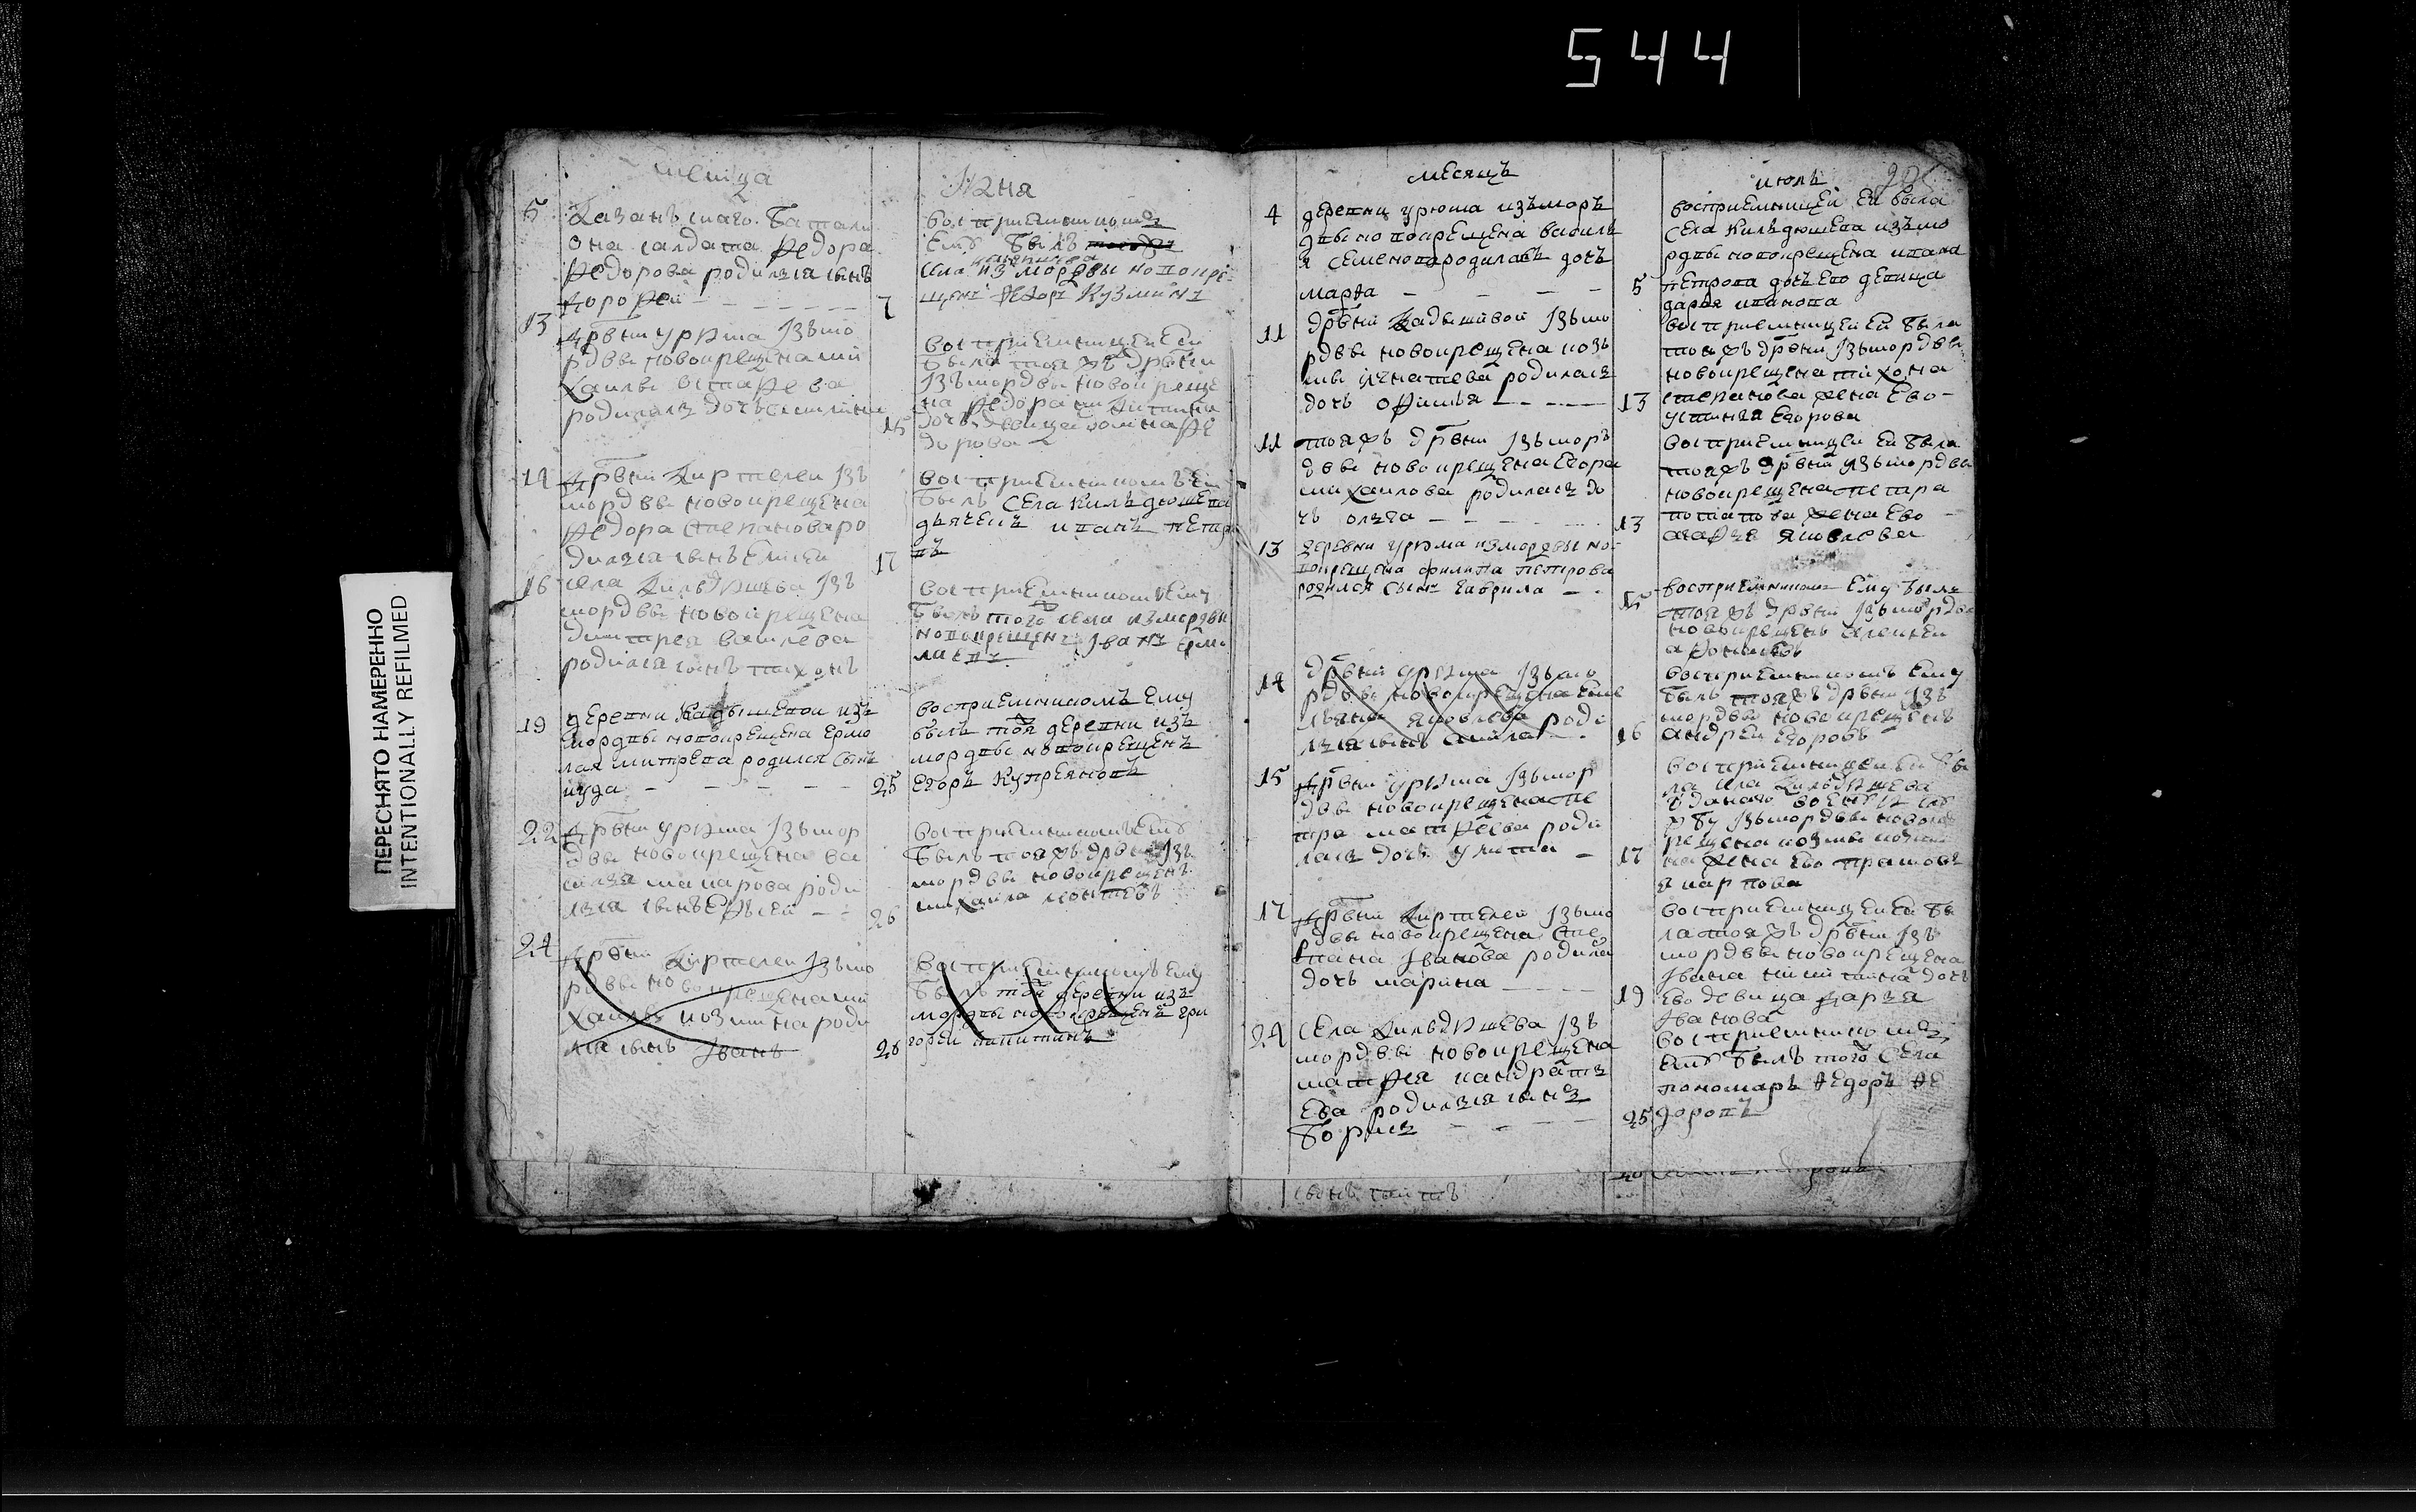 544
ПЕРЕСНЯТО НАМЕРЕННО
INTENTIONALLY REFILMED
месяца
июня
5
Казанъскаго батали
она салдата Федора
Федорова родился сынъ
дорофей
востприемникомъ
ему былъ
села из мордвы новокре
щенъ Федоръ Кузминъ
7
13
дрвни урюма изъ мо
рдвы новокрещена ми
хаилы
родилась дочь
востприемницей ей
была тояжъ дрвни
изъ мордвы новокреще
на Федора
дочь девица
дорова
15
14
дрвни Киртелеи изъ
мордвы новокрещена
Федора Степанова ро
дился сынъ Елисеи
востприемникомъ ему
былъ села Кильдюшева
дьячекъ иванъ петро
въ
17
16
села Кильдюшева изъ
мордвы новокрещена
димитрея василева
родился сынъ тихонъ
востприемникомъ ему
былъ того села из мордвы
новокрещенъ иванъ ерми
лаевъ
19
деревни Кадышевои изъ
мордвы новокрещена ермо
лая митрева родился сынъ
иуда
восприемникомъ ему
былъ тоя деревни изъ
мордвы новокрещенъ
егоръ купреяновъ
25
22
дрвни урюма изъ мор
двы новокрещена ва
силья макарова роди
лся сынъ
востприемникомъ ему
былъ тояжъ дрвни изъ
мордвы новокрещенъ
михаила леонтевъ
26
24
дрвни Киртелеи изъ мо
рдвы новокрещена ми
хаилы козмина роди
лся сынъ Иванъ
востприемникомъ ему
былъ тоя деревни изъ
мордвы новокрещенъ гри
горей никитинъ
28
месяцъ
июль
4
деревни урюма изъ моръ
двы новокрещена василь
я семенова родилась дочь
марфа
восприемницей ей была
села Кильдюшева изъ мо
рдвы новокрещена ивана
петрова дочь ево девица
дарья иванова
5
11
дрвни Кадышвои изъ мо
рдвы новокрещена козь
мы игнатева родилась
дочь офимья
востприемницей ей была
тояжъ дрвни изъ мордвы
новокрещена тихона
степанова жена ево
устинья егорова
13
11
тояжъ дрвни изъ моръ
двы новокрещена егора
михаилова родилась до
чь олга
востприемницей ей была
тояжъ дрвни изъ мордвы
новокрещена петра
потапова жена ево
агафья яковлева
13
13
деревни урюма из мордвы но
вокрещена филипа петрова
родился сынъ гаврила
восприемникомъ ему былъ
тояжъ дрвни изъ мордвы
новокрещенъ алексеи
афонасевъ
14
дрвни урюма изъ мо
рдвы новокрещена еме
льяна яковлева роди
лся сынъ
восприемникомъ ему
былъ тояжъ дрвни изъ
мордвы новокрещенъ
андреи егоровъ
16
15
дрвни урюма изъ мор
двы новокрещена пе
тра матфеева роди
лась дочь улита
востприемницеи ей бы
ла села Кильдюшева
изъ мордвы новок
рещена козмы
на жена ево прасковь
я карпова
17
17
дрвни Киртелеи изъ мо
рдвы новокрещена сте
пана Иванова родилась
дочь марина
востприемницеи ей бы
ла тояжъ дрвни изъ
мордвы новокрещена
Ивана никитина дочь
ево девица дарья
Иванова
19
24
села Кильдюшева изъ
мордвы новокрещена
матфея кандрать
ева родился сынъ
борисъ
востприемникомъ
ему былъ того села
пономарь федоръ фе
доровъ
25